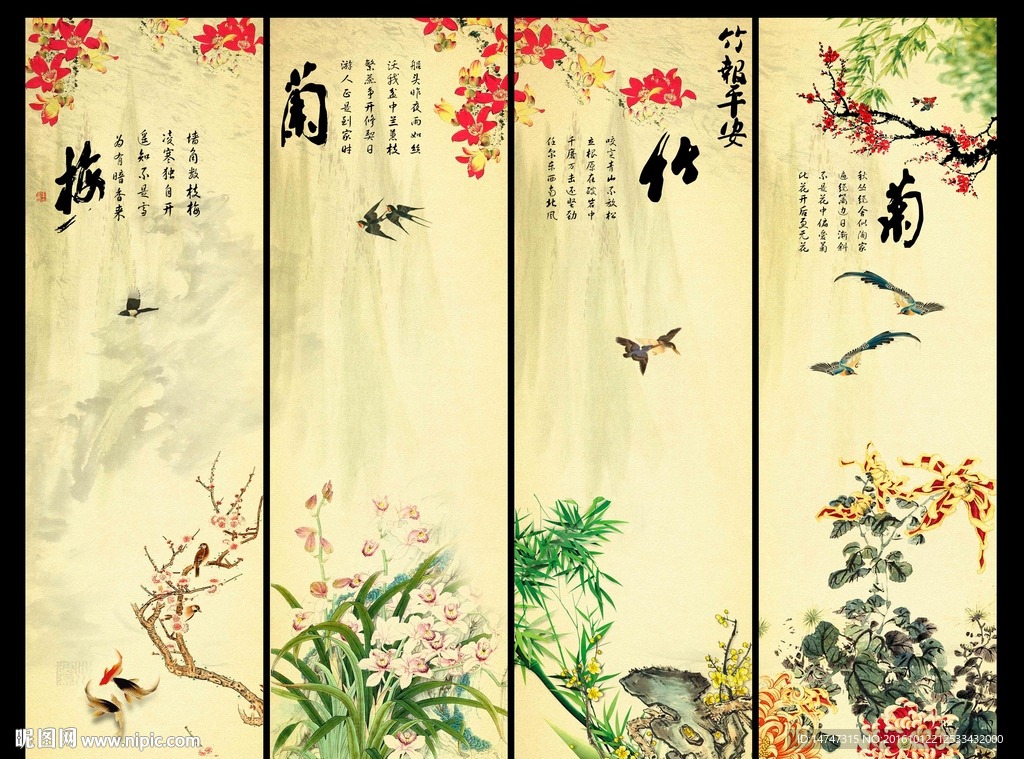 墙角数枝梅
凌寒独自开
遥知不是雪
为有暗香来
梅
船头昨夜雨如丝
沃我盆中兰蕙枝
繁蕊争开修契日
游人正是到家时
蘭
竹報平安
竹
咬定青山不放松
立根原在破岩中
千磨万击还坚劲
任尔东西南北风
菊
秋丛绕舍似陶家
遍绕篱边日渐斜
不是花中偏爱菊
此花开后更无花
昵图网 www.nipic.com
ID:14747315 NO:20161012212533432000